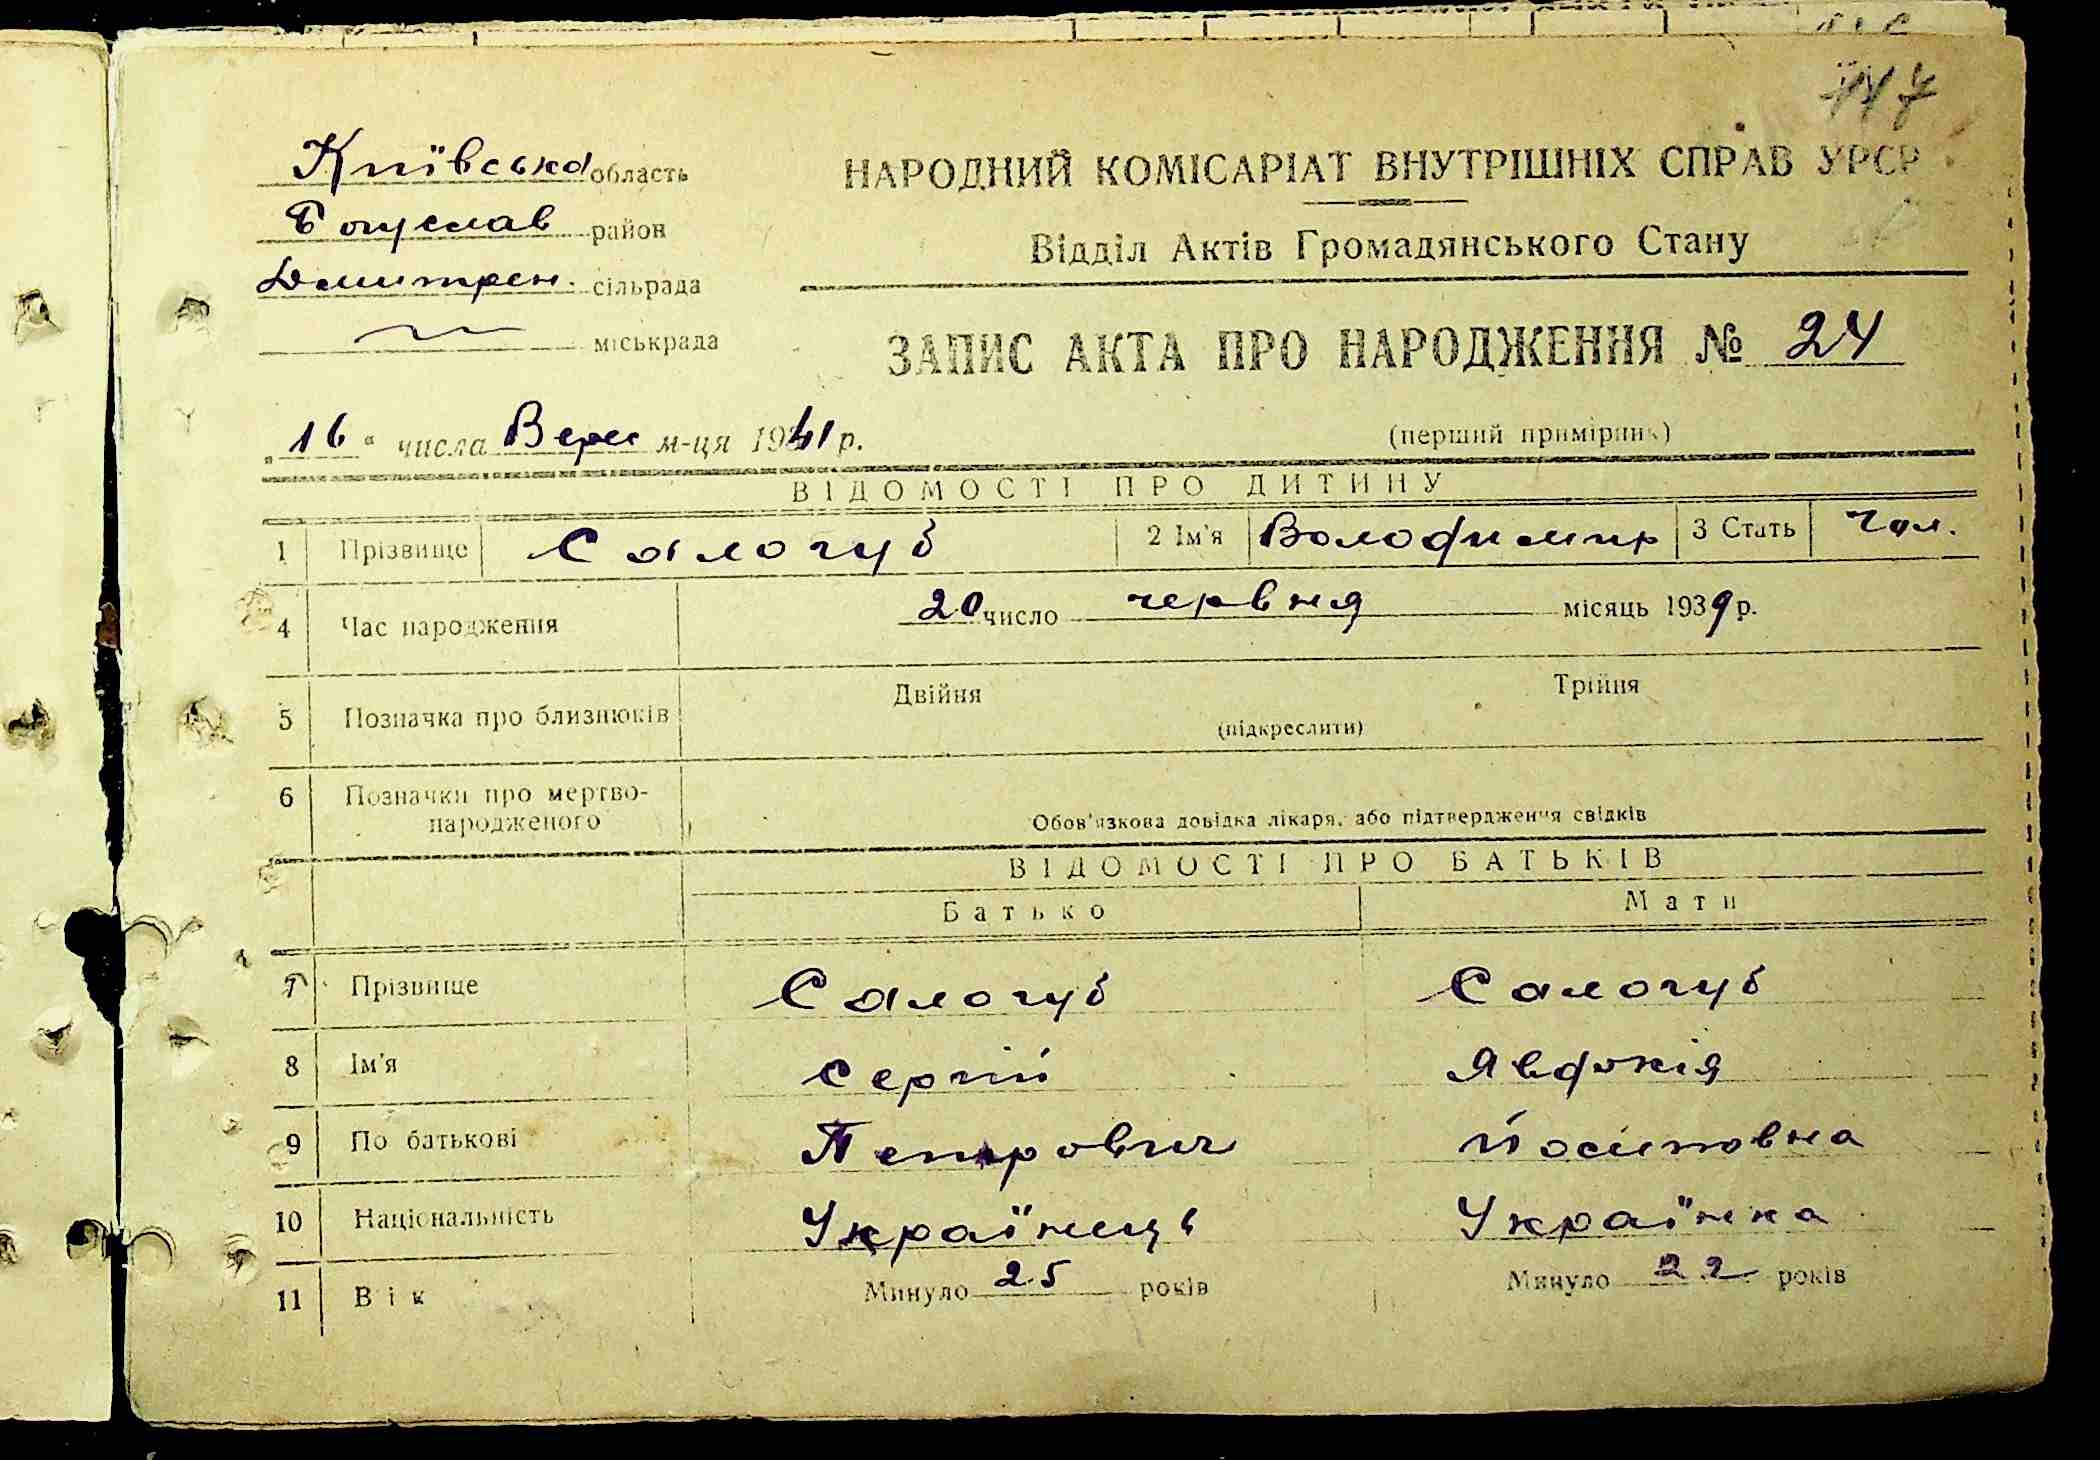 147
Київська область
Богуслав район
Дмитрен. сільрада
міськрада
НАРОДНИЙ КОМІСАРІАТ ВНУТРІШНІХ СПРАВ УРСР
Відділ Актів Громадянського Стану
ЗАПИС АКТА ПРО НАРОДЖЕННЯ № 24
"16" числа Верес м-ця 1941 р.
(перший примірник)
ВІДОМОСТІ ПРО ДИТИНУ
1 Прізвище Салогуб 2 Ім'я Володимир 3 Стать Чол.
4 Час народження 20 число червня місяць 1939 р.
5 Позначка про близнюків Двійня Трійня
(підкреслити)
6 Позначки про мертво-
народженого Обов'язкова довідка лікаря, або підтвердження свідків
ВІДОМОСТІ ПРО БАТЬКІВ
Батько Мати
7 Прізвище Салогуб Салогуб
8 Ім'я Сергій Явдокія
9 По батькові Петрович Йосиповна
10 Національність Українець Українка
11 Вік Минуло 25 років Минуло 22 років